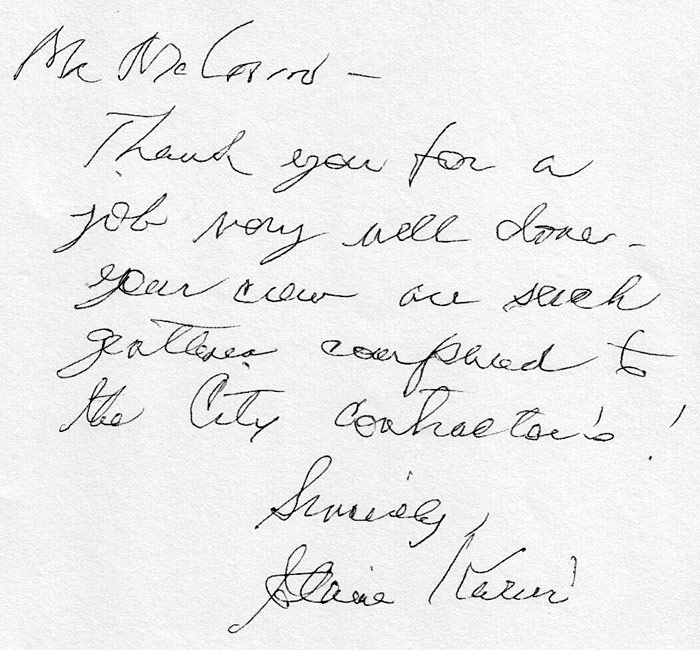 Mr McCord –
Thank you for a
job very well done –
your crew are such
gentlemen compared to
the City contractor's!
Sincerely,
Elaine